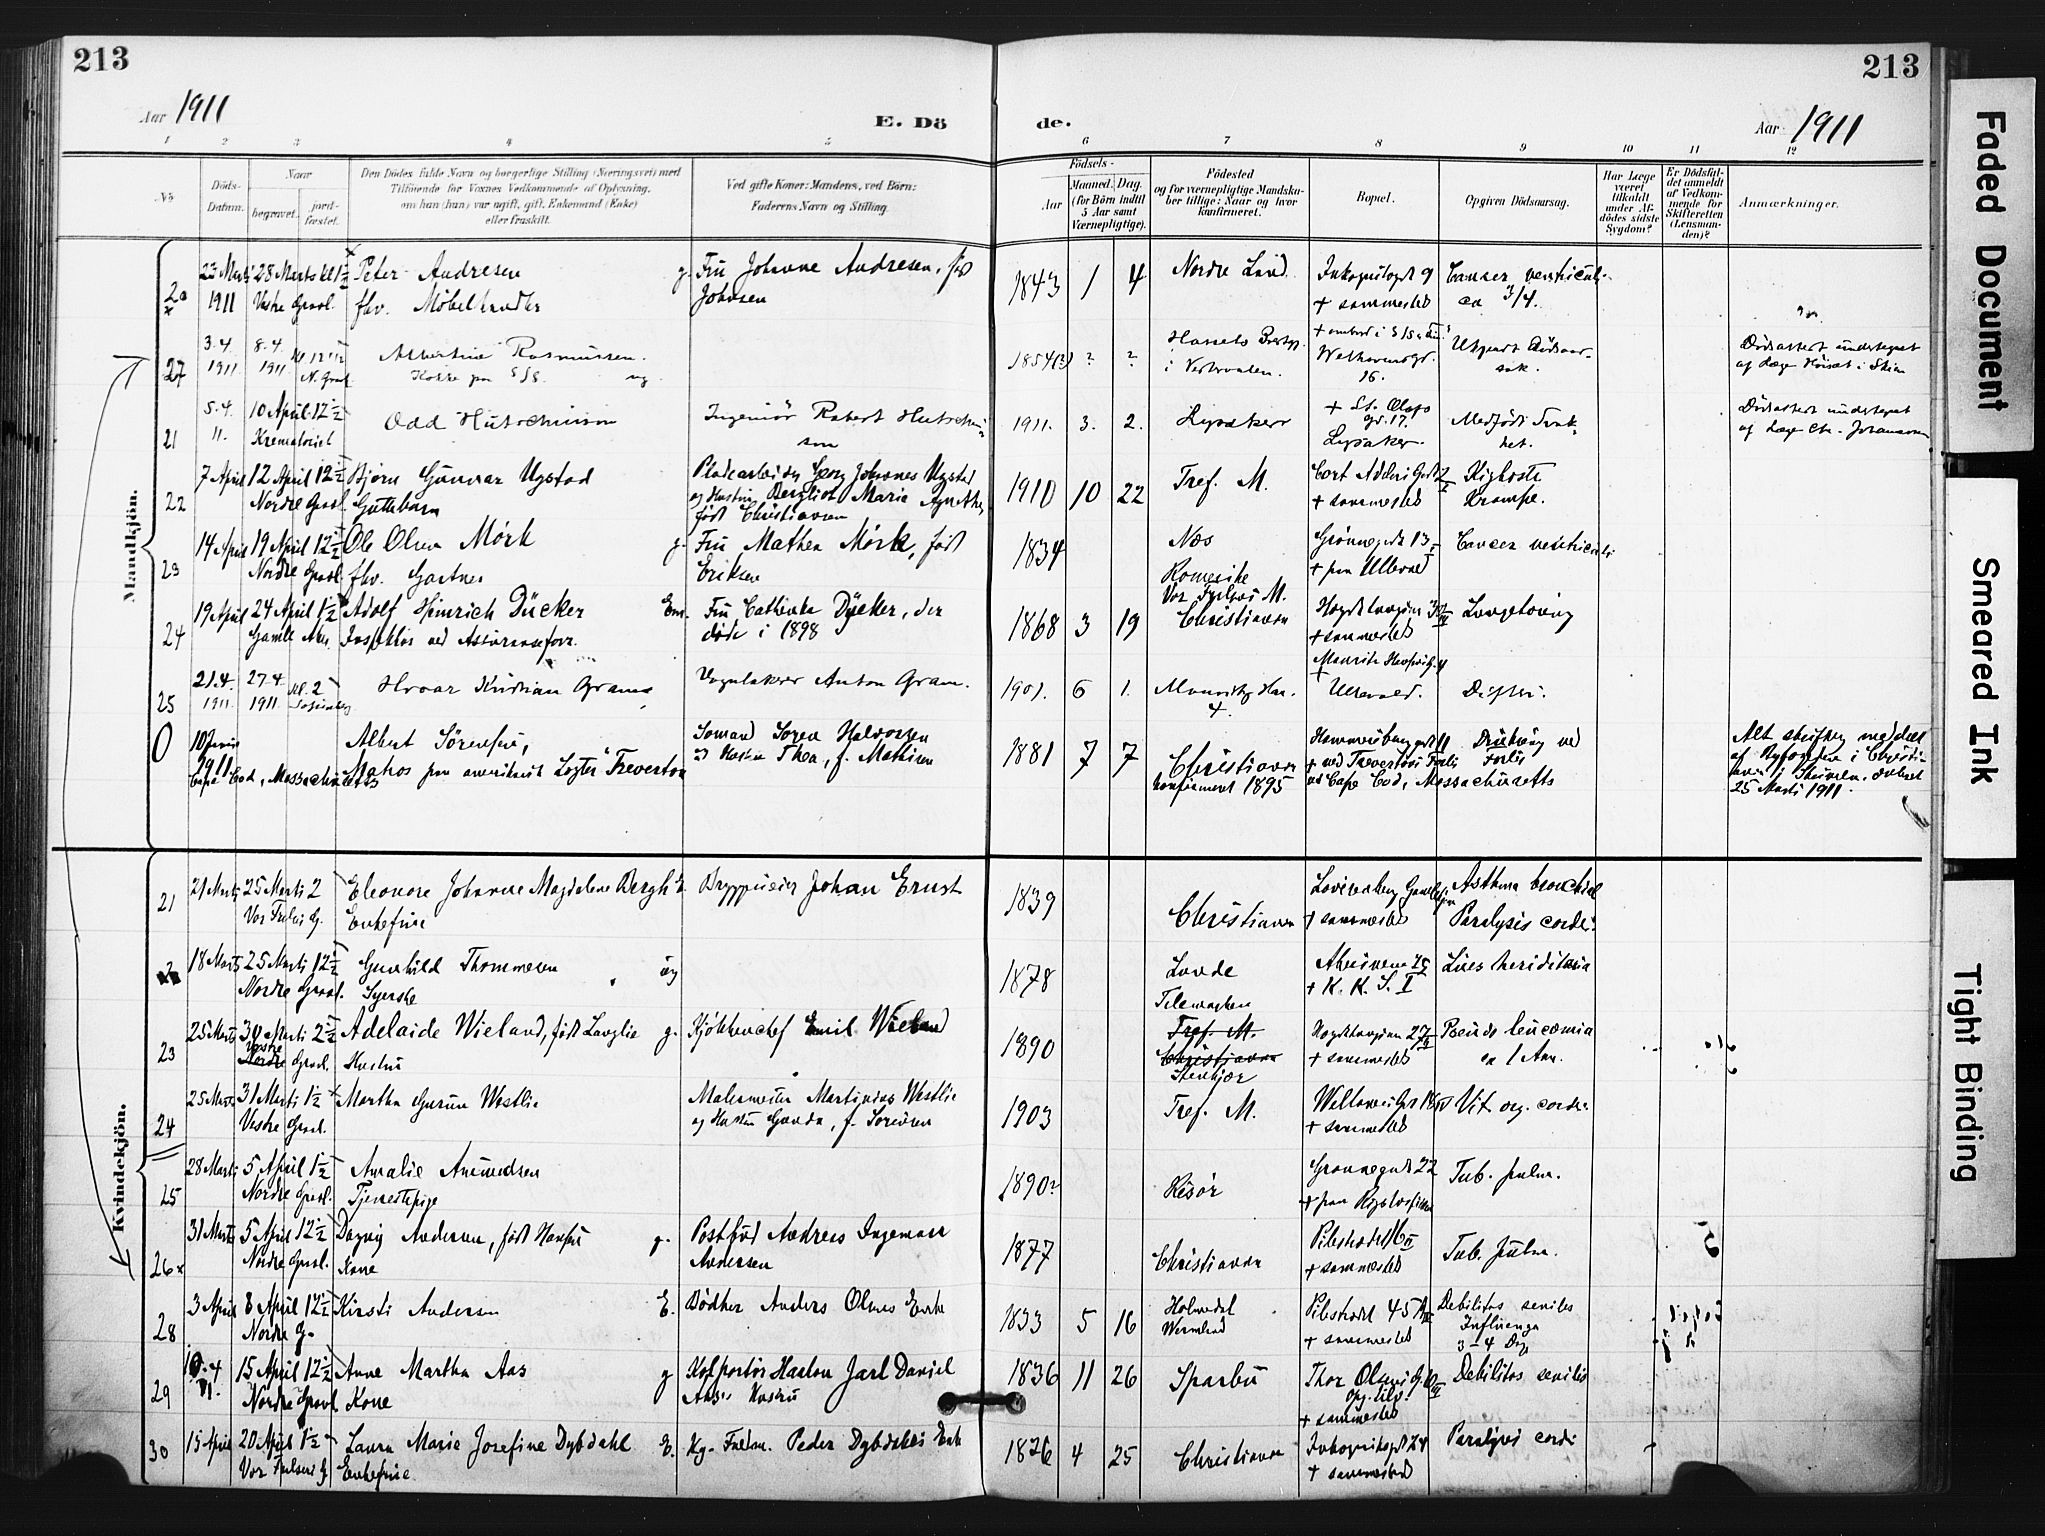 213
213
Aar 1911
E. Dö
de.
Aar 1911
1 2 3 4 5 6 7 8 9 10 11 12
No
Döds-Datum.
Naar
begravet.
jord-fæstet.
Den Dödes fulde Navn og borgerlige Stilling (Næringsvei) med
Tilföiende for Voxnes Vedkommende af Oplysning,
om han (hun) var ugift, gift, Enkemand (Enke)
eller fraskilt.
Ved gifte Koner: Mandens, ved Börn:
Faderens Navn og Stilling.
Födsels-
Aar
Maaned. Dag.
(for Börn indtil
5 Aar samt
Værnepligtige).
Födested
og for værnepligtige Mandsku-
ber tillige: Naar og hvor
konfirmeret.
Bopæl.
Opgiven Dödsaarsag.
Har Læge
været
tilkaldt
under Af-
dödes sidste
Sygdom?
Er Dödsfal-
det anmeldt
af Vedkom-
mende for
Skifteretten
(Lensman-
den)?
Anmærkninger.
Mandkjön.
20 23 Marts 28 Marts kl 1½ Peter Andresen g. Fru Johanne Andresen, født 1843 1 4 Nordre Land Inkognitogt 9 Cancer ventriculi
1911 Vestre Gravl. fhv. Møbelhandler Johnsen + sammested ca 3/4.
27 3.4. 1911 8.4. 1911 N. Gravl. Albertine Rasmussen. 1854(3) ? ? Welhavensgt. 16. Ukjendt Dødsaarsak. Dødsattest undertegnet
Kokke paa S/S. ug.
21 5.4. 11. 10 April 12½ Krematoriet Odd Hutschinson Ingeniør Robert Hutschinson 1911. 3. 2. Lysaker + St. Olafs gt. 17. Lysaker. Medfødt Svakhet. Dødsattest undertegnet
af Læge Chr. Johannessen
22 7 April 12 April 12½ Bjørn Gunnar Ugstad Pladearbeider Georg Johannes Ugstad 1910 10 22 Tref. M. Cort Adelers Gt 2 Kighoste
Nordre Gravl. Guttebarn og Hustru Bergliot Maria Agnethe, født Christiansen + sammested Krampe.
23 14 April 19 April 12½ Ole Olsen Mørk g. Fru Mathea Mørk, født 1834 Næs Grønnegt 13 Cancer ventriculi
Nordre Gravl. fhv. Gartner Eriksen Romerike + paa Ullevaal
24 19 April 24 April 1½ Adolf Heinrich Dücker Em. Fru Cathinka Dücker, der 1868 3 19 Vor Frelsers M. Christiania Hegdehaugsvn 30 Lungetæring
Gamle Aker Inspektør ved Assuranseforr. døde i 1898 + sammested
25 21.4. 1911. 27.4. 1911 kl. 2 Hroar Kristian Gram Vognlakerer Anton Gram. 1901. 6 1. 4. + Ullevaal. Difteri.
0 10 Januar 1911 Albert Sörensen, Sømand Søren Halvorsen 1881 7 7 Christiania Hammersborggt 11 Drukning ved Forlis Alt skriftlig meddelt
Cape Cod, Massachusetts Matros paa amerikansk Lægter Treverton og Hustru Thea, f. Mathisen konfirmeret 1895 + ved Trevertons Forlis ved Cape Cod, Massachusetts 25 Marts 1911.
Kvindekjön.
21 21 Marts 25 Marts 2 Eleonore Johanne Magdalene Bergh E. Bryggerieier Johan Ernst 1839 Christiania Asthma bronchial
Vor Frels. G. Enkefrue + sammested Paralysis cordis
18 Marts 25 Marts 12½ Gunhild Thommesen ug 1878 Lunde Akersveien 25 Lues hereditaria
Nordre Gravl. Syerske Telemarken + K. K. S. I
23 25 Marts 30 Marts 2½ Adelaide Wieland, født Langlie g. Kjøkkenchef Emil Wieland 1890 Tref. M. Christiania Stenkjær Hegdehaugsvn 27 Pseudo leucæmia
Nordre Vestre Gravl. Hustru + sammested ca 1 Aar.
24 25 Marts 31 Marts 1½ Martha Gurine Westlie Malermester Martinius Westlie 1903 Tref. M. Welhavens Gt 18 Vit. org. cordis
Vestre Gravl. og Hustru Gunda, f. Sørensen + sammested
25 28 Marts 5 April 1½ Amalie Amundsen 1890? Risør Grønnegt 22 Tub. pulm.
Nordre Gravl. Tjenestepige + paa Rigshospitalet
26 31 Marts 5 April 12½ Dagny Andersen, født Hansen g. Postbud Andreas Ingeman 1877 Christiania Pilestrædet 16 Tub. pulm.
Nordre Gravl. Kone Andersen + sammested
28 3 April 8 April 12½ Kirsti Andersen E. Bødker Anders Olsens Enke 1833 5 16 Holmedal Wermland Pilestrædet 45 Debilitas senilis
Nordre G. + sammested Influenza 3-4 Dage
29 10.4. 11. 15 April 12½ Anne Martha Aas g Kolportør Haakon Jarl Daniel 1836 11 26 Sparbu Thor Olsens G. Debilitas senilis
Nordre Gravl Kone Aas's Hustru + sammested
30 15 April 20 April 1½ Laura Marie Josefine Dybdahl E. Kg. Fuldm. Peder Dybdahls Enke 1826 4 25 Christiania Inkognitogt 24 Paralysis cordis
Vor Frelsers G. Enkefrue + sammested
Faded Document
Smeared Ink
Tight Binding